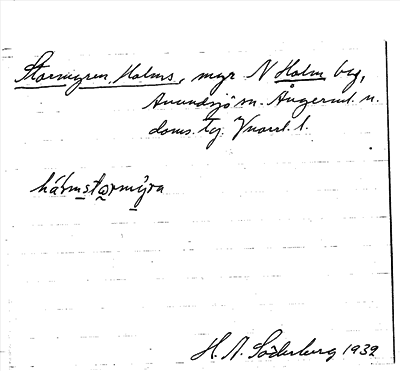 Stormyren, Holms, myr N Holm by,
Anundsjö sn. Ångerml. n.
doms. tg. Vnorrl. l.
hå̀ɫmstormỳra
H. A. Söderberg 1932